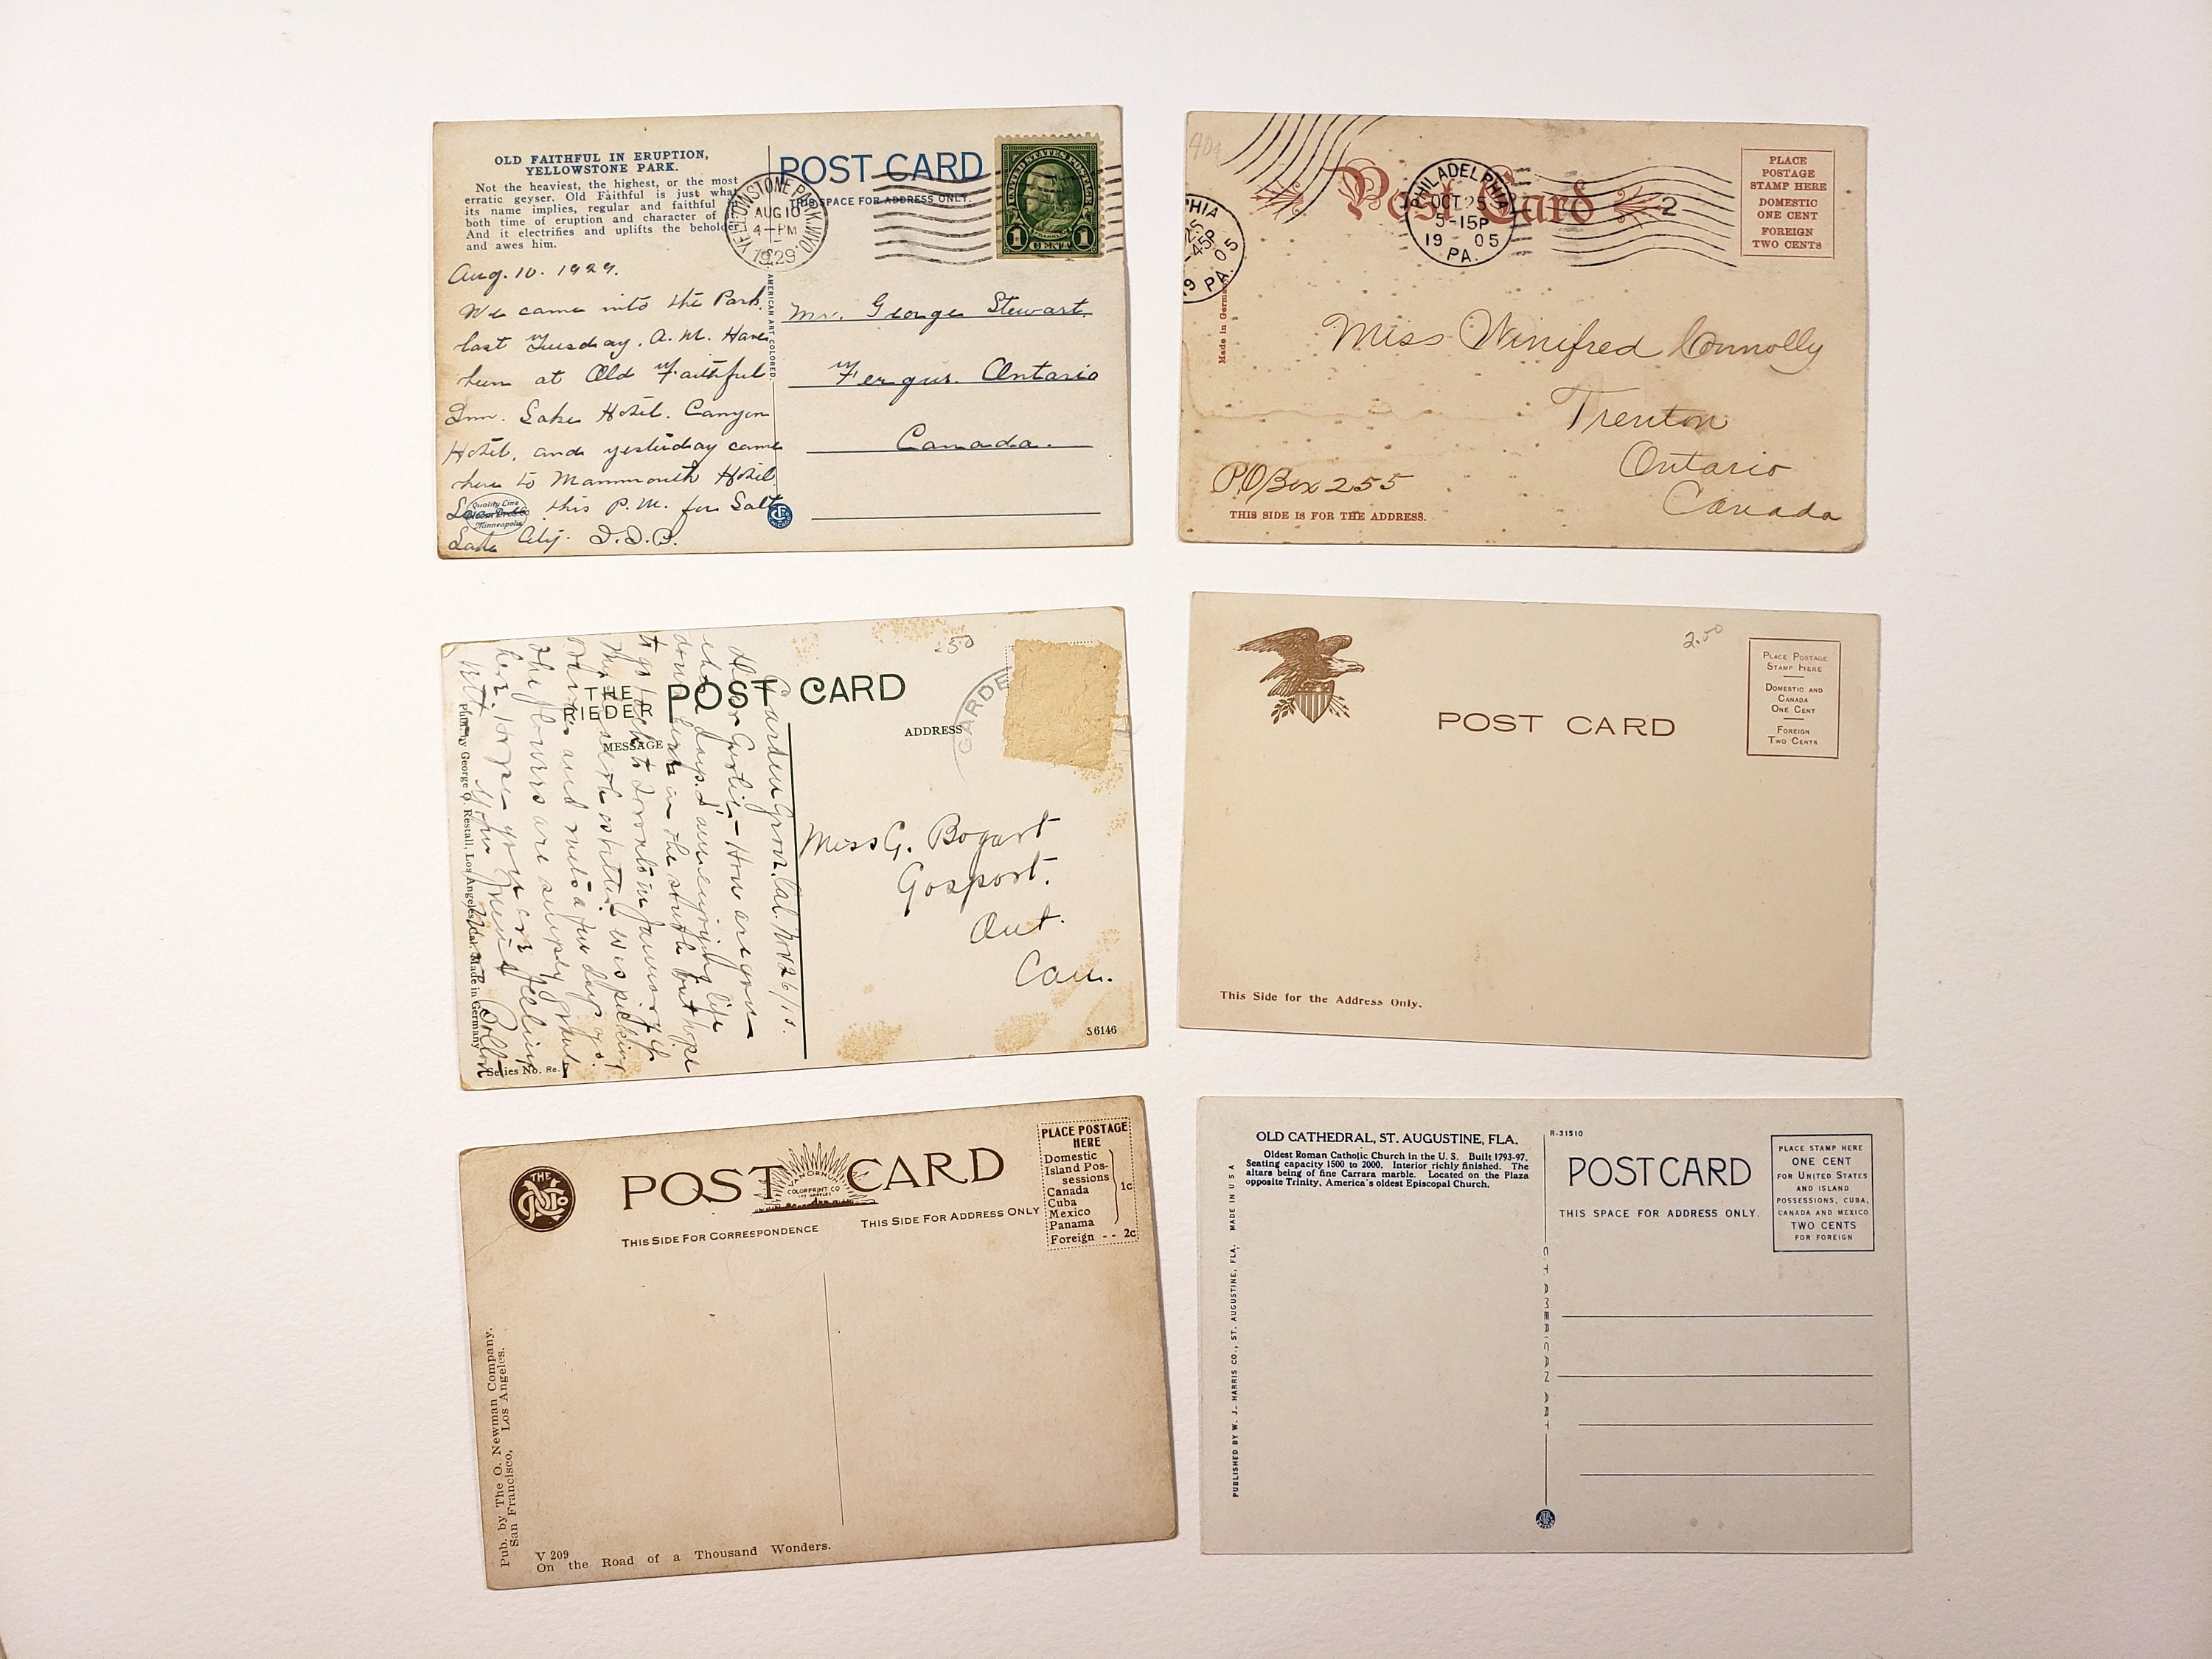 OLD FAITHFUL IN ERUPTION,
YELLOWSTONE PARK.
Not the heaviest, the highest, or the most
erratic geyser. Old Faithful is just what
its name implies, regular and faithful in
both time of eruption and character of
And it electrifies and uplifts the beholder
and awes him.
POST CARD
THIS SPACE FOR ADDRESS ONLY.
YELLOWSTONE PARK, WYO.
AUG 10
4-PM
1929
UNITED STATES POSTAGE
FRANKLIN
1 CENT 1
Aug. 10. 1929.
We came into the Park
last Tuesday. A. M. Have
been at Old Faithful
Inn. Lake Hotel. Canyon
Hotel, and yesterday came
here to Mammouth Hotel.
this P. M. for Salt
Lake City. D. D. B.
Quality Line
Minneapolis
AMERICAN ART COLORED.
Mr. George Stewart.
Fergus. Ontario
Canada.
404
Post Card
PHILADELPHIA
OCT 25
5-15P
19 05
PA.
2
PHIA
25
45P
19 05
PA.
PLACE
POSTAGE
STAMP HERE
DOMESTIC
ONE CENT
FOREIGN
TWO CENTS
Made in Germany
Miss Winifred Connolly
Trenton
Ontario
Canada
P.O Box 255
THIS SIDE IS FOR THE ADDRESS.
THE
RIEDER
POST CARD
MESSAGE
ADDRESS
GARDE
250
Garden Grove. Cal. Nov 26/13.
Dear Gertie - How are you
these days. I am enjoying life
down here in the south but hope
to go back to Toronto in January if
my is still picking
oranges and nuts a few days ago.
The flowers are simply great
here. I hope you are feeling
Miss G. Bogart
Gosport.
Ont.
Can.
S6146
Pub. by George O. Restall, Los Angeles, Cal. Made in Germany
Series No. Re.
2.00
POST CARD
PLACE POSTAGE
STAMP HERE
DOMESTIC AND
CANADA
ONE CENT
FOREIGN
TWO CENTS
This Side for the Address Only.
THE
POST CARD
VAN ORNUM
COLORPRINT CO
LOS ANGELES
THIS SIDE FOR CORRESPONDENCE
THIS SIDE FOR ADDRESS ONLY
PLACE POSTAGE
HERE
Domestic
Island Pos-
sessions
Canada
Cuba
Mexico
Panama
1c
Foreign - - 2c
Pub. by The O. Newman Company.
San Francisco, Los Angeles.
V 209
On the Road of a Thousand Wonders.
OLD CATHEDRAL, ST. AUGUSTINE, FLA.
Oldest Roman Catholic Church in the U. S. Built 1793-97.
Seating capacity 1500 to 2000. Interior richly finished. The
altars being of fine Carrara marble. Located on the Plaza
opposite Trinity, America's oldest Episcopal Church.
R-31510
POST CARD
THIS SPACE FOR ADDRESS ONLY.
PLACE STAMP HERE
ONE CENT
FOR UNITED STATES
AND ISLAND
POSSESSIONS, CUBA,
CANADA AND MEXICO
TWO CENTS
FOR FOREIGN
C T AMERICAN ART
PUBLISHED BY W. J. HARRIS CO., ST. AUGUSTINE, FLA. MADE IN U S A